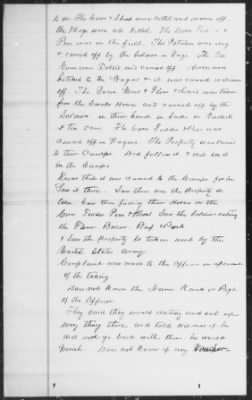 to us The Cows & Sheep were killed and driven off
the Hogs were all killed. The Corn Pea - &
Peas was in the field. The Potatoes was dug
& carried off by the Soldiers in Bags. The
Hitched to the Wagon & it was carried
off. The Bacon Flour & Lard was taken
from the Smoke House and carried off by the
Soldiers in their hands in Sacks in Buckets
& tin cans. The Corn Fodder & Peas was
carried off in Wagons. The Property was carried
to their Camps. Did follow it & did see it
in the Camps
Know that it was carried to the Camps for he
Saw it there. Saw them use the Property so
taken. Saw them feeding their Horses on the
Corn Fodder Peas & Oats Saw the Soldiers eating
the Flour Bacon Beef & Pork
& Saw the property so taken used by the
United States Army
Complaint was made to the Officer in command
of the taking
Does not know the Name Rank or Regt
of the Officer.
They said they would destroy and eat up
every thing there and told widow if he
did not go back with them he would
perish. Does not know if any Voucher